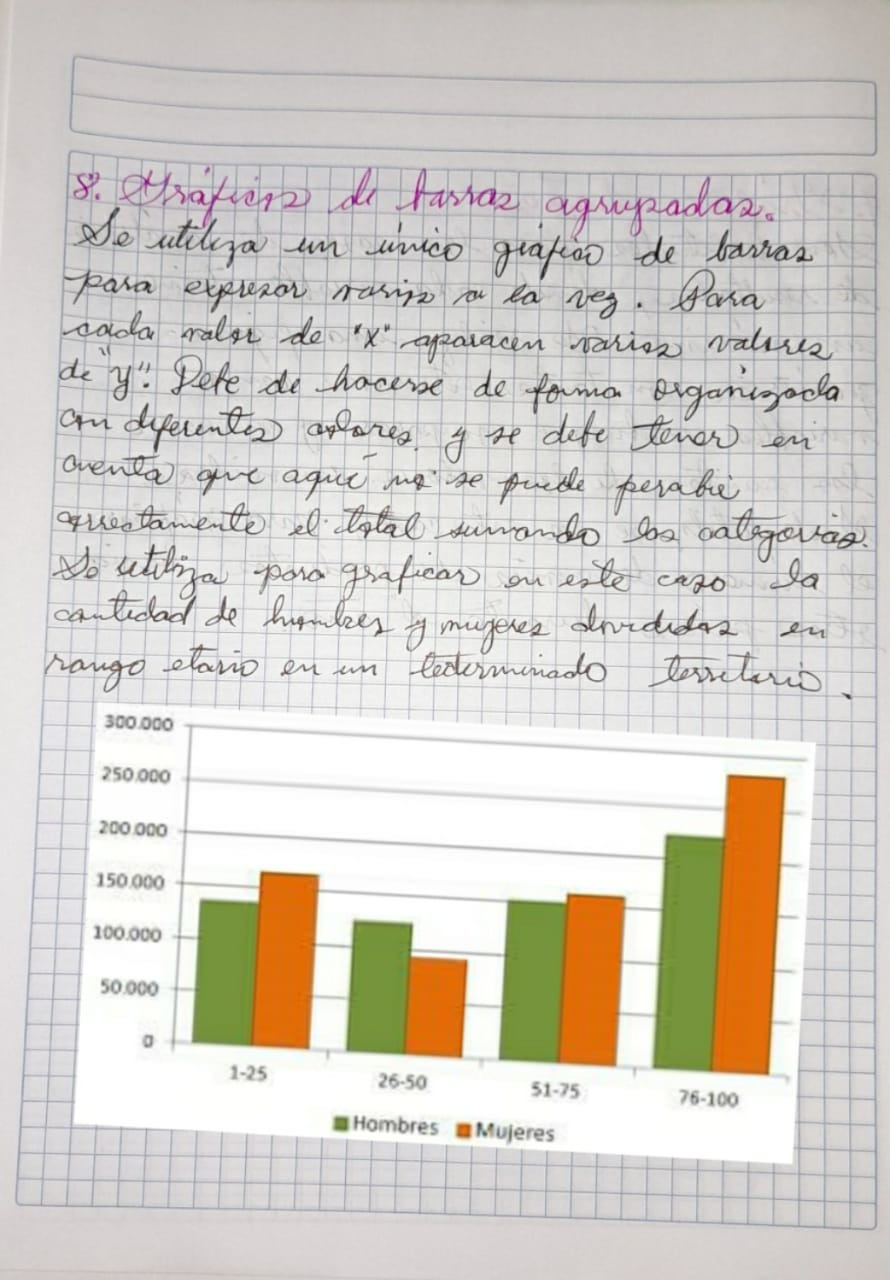 8. Gráficos de barras agrupadas.
Se utiliza un único gráfico de barras
para expresar varios a la vez. Para
cada valor de "x" aparacen varios valores
de "y". Debe de hacerse de forma organizada
con diferentes colores y se debe tener en
cuenta que aquí no se puede
correctamente el total sumando las categorías.
Se utiliza para graficar en este caso la
cantidad de hombres y mujeres divididos en
rango etario en un territorio.
300.000
250.000
200.000
150.000
100.000
50.000
0
1-25 26-50 51-75 76-100
Hombres Mujeres